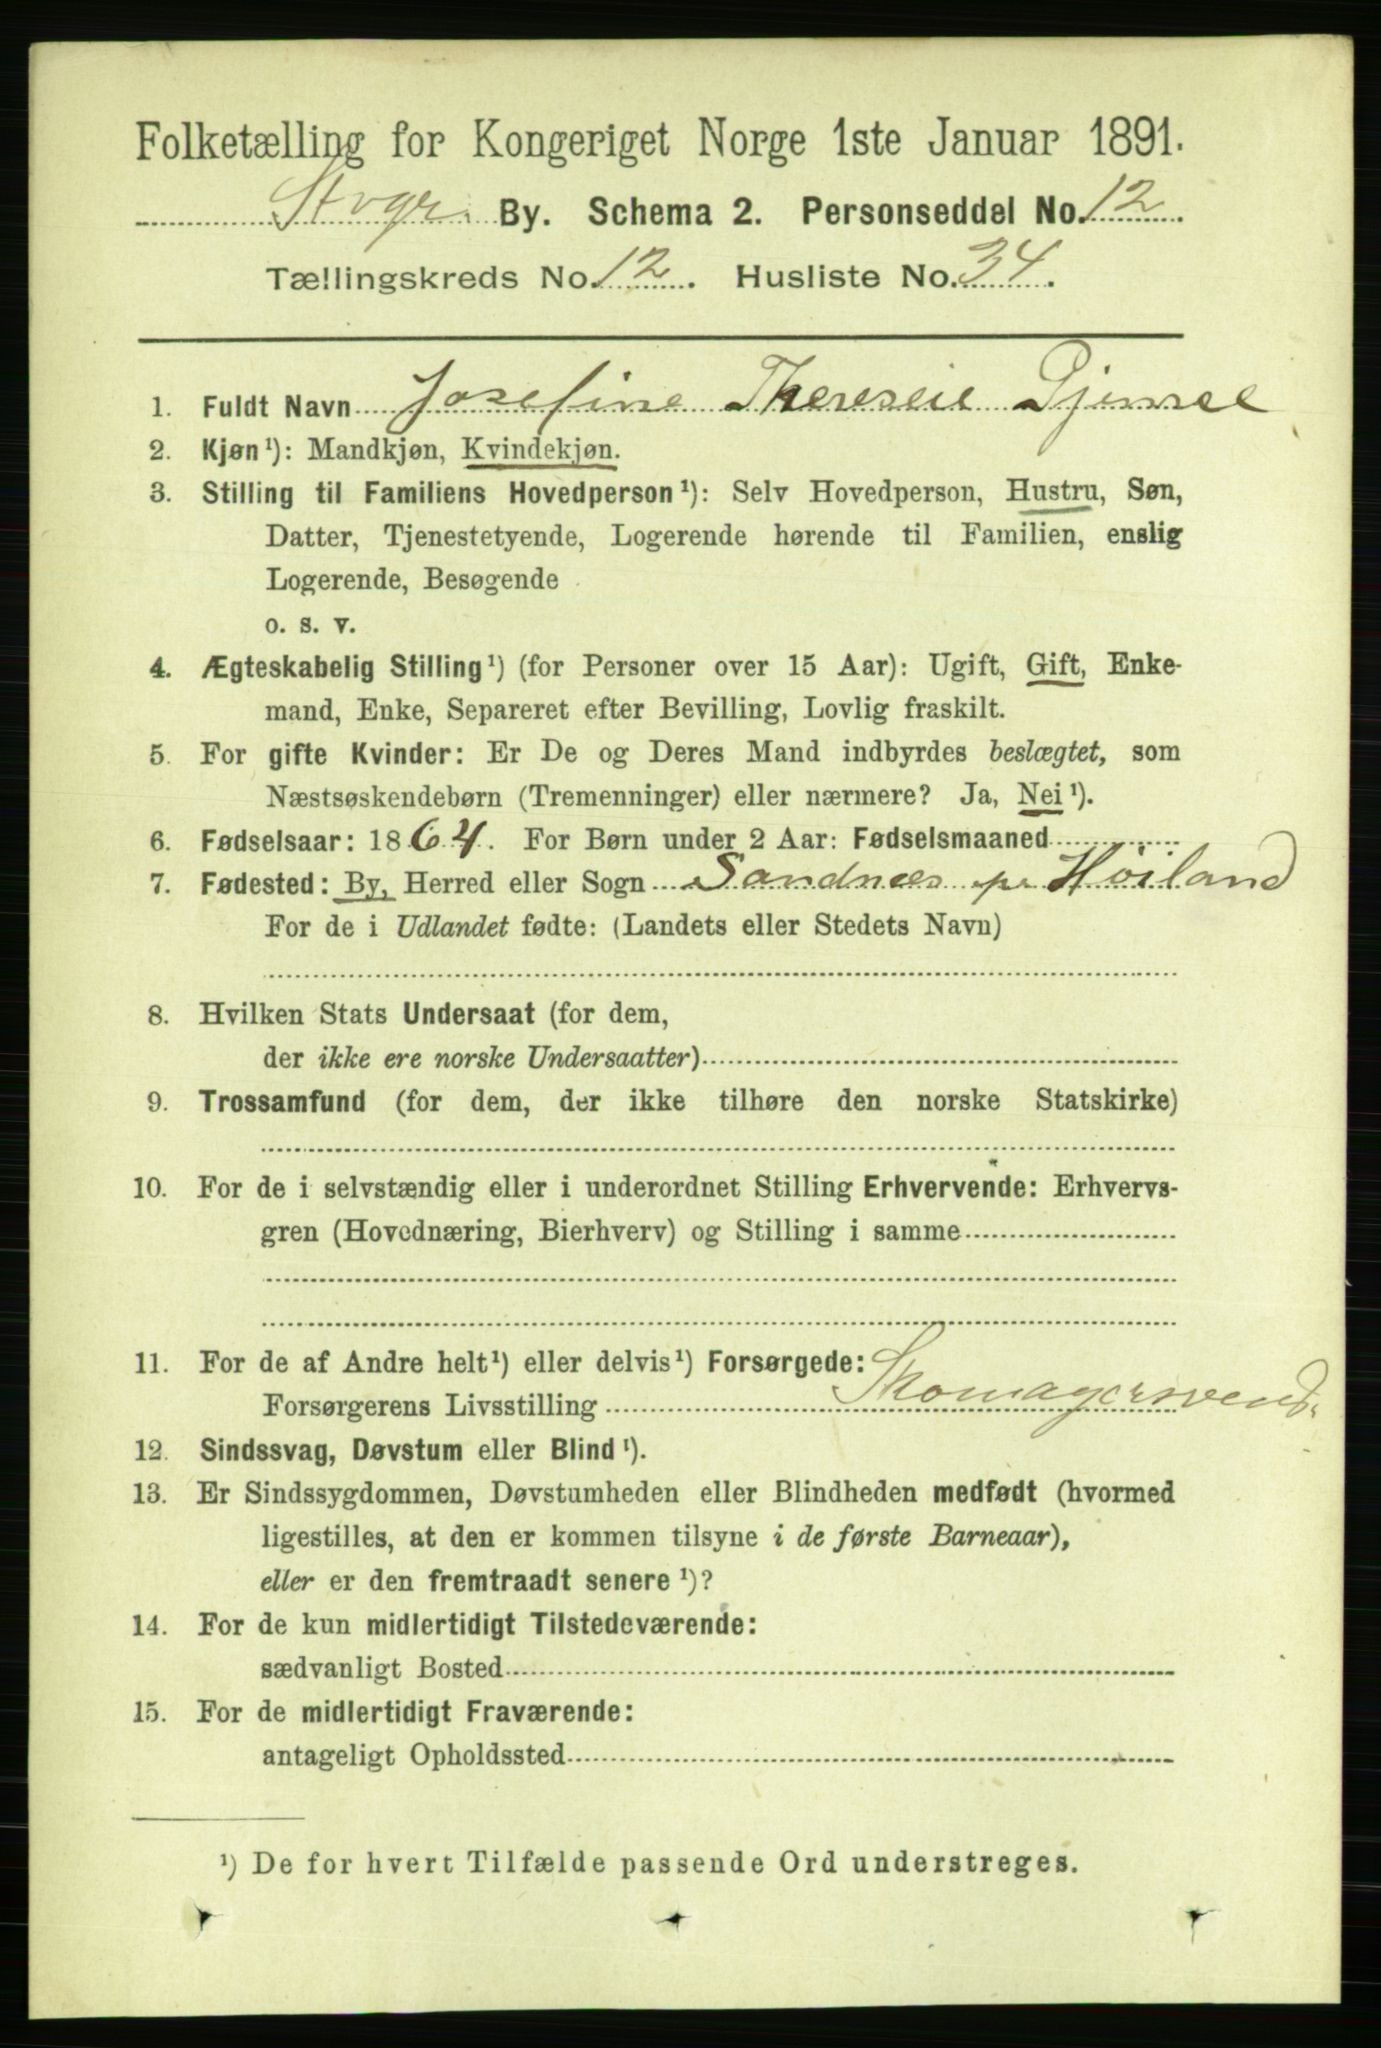 Folketælling for Kongeriget Norge 1ste Januar 1891.
Stvgr. By. Schema 2. Personseddel No. 12
Tællingskreds No. 12. Husliste No. 34.
1. Fuldt Navn Josefine
2. Kjøn¹): Mandkjøn, Kvindekjøn.
3. Stilling til Familiens Hovedperson¹): Selv Hovedperson, Hustru, Søn,
Datter, Tjenestetyende, Logerende hørende til Familien, enslig
Logerende, Besøgende
o. s. v.
4. Ægteskabelig Stilling¹) (for Personer over 15 Aar): Ugift, Gift, Enke-
mand, Enke, Separeret efter Bevilling, Lovlig fraskilt.
5. For gifte Kvinder: Er De og Deres Mand indbyrdes beslægtet, som
Næstsøskendebørn (Tremenninger) eller nærmere? Ja, Nei¹).
6. Fødselsaar: 1864. For Børn under 2 Aar: Fødselsmaaned
7. Fødested: By, Herred eller Sogn Sandnæs pr Høiland
For de i Udlandet fødte: (Landets eller Stedets Navn)
8. Hvilken Stats Undersaat (for dem,
der ikke ere norske Undersaatter)
9. Trossamfund (for dem, der ikke tilhøre den norske Statskirke)
10. For de i selvstændig eller i underordnet Stilling Erhvervende: Erhvervs-
gren (Hovednæring, Bierhverv) og Stilling i samme
11. For de af Andre helt¹) eller delvis¹) Forsørgede:
Forsørgerens Livsstilling Skomagersvend.
12. Sindssvag, Døvstum eller Blind¹).
13. Er Sindssygdommen, Døvstumheden eller Blindheden medfødt (hvormed
ligestilles, at den er kommen tilsyne i de første Barneaar),
eller er den fremtraadt senere¹)?
14. For de kun midlertidigt Tilstedeværende:
sædvanligt Bosted
15. For de midlertidigt Fraværende:
antageligt Opholdssted
¹) De for hvert Tilfælde passende Ord understreges.